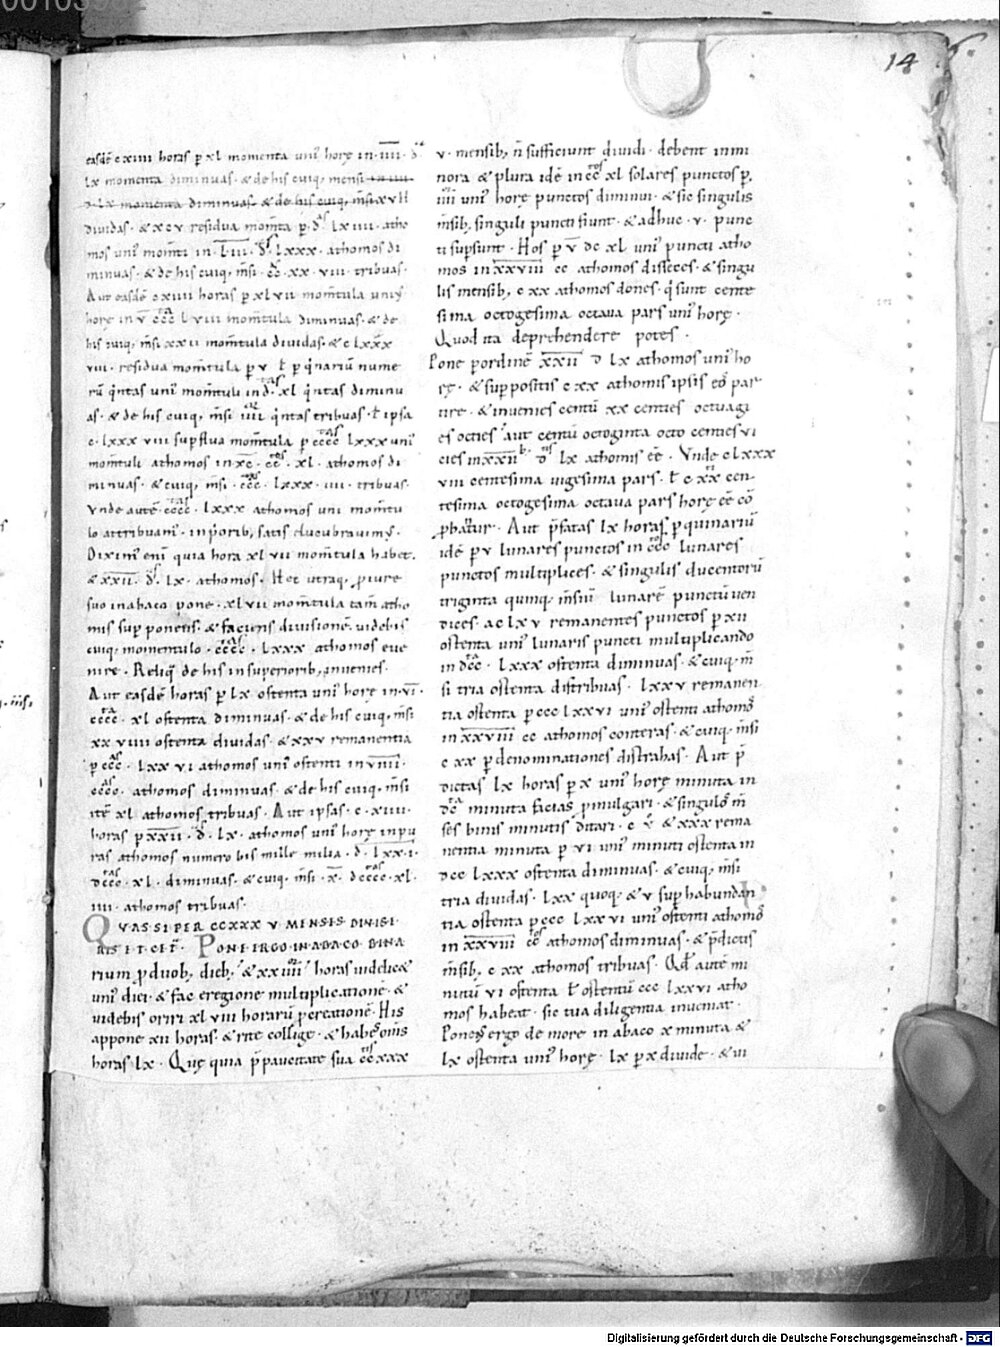 14
easdē c xiiii horas p xl momenta uni' horę in iiii d
lx momenta diminuas & de his cuiq; mensi
d lx momenta diminuas & de his cuiq; m̄si xvii
diuidas & xcv residua mom̄ta p d lxiiii atho
mos uni' mom̄ti in liii d lxxx athomos di
minuas & de his cuiq; m̄si cc xx viii tribuas
Aut easdē c xiiii horas p xl vii mom̄tula uni'
horę in v ccc lviii mom̄tula diminuas & de
his cuiq; m̄si xxii mom̄tula diuidas & c lxxx
viii residua mom̄tula p v ł p q̇nariū nume
rū q̇ntas uni' mom̄tuli in d xl q̇ntas diminu
as & de his cuiq; m̄si iiii q̇ntas tribuas ł ipsa
c lxxx viii supflua mom̄tula p cccc lxxx uni'
mom̄tuli athomos in xc cc xl athomos di
minuas & cuiq; m̄si ccc lxxx iiii tribuas
Vnde autē cccc lxxx athomos uni mom̄tu
lo attribuam' in p̄orib; satis elucubrauim'
Dixim' eni quia hora xl vii mom̄tula habet
& xxii d lx athomos Hec utraq; p iure
suo in abaco pone xl vii mom̄tula tam atho
mis sup ponens & faciens diuisionē uidebis
cuiq; momentulo cccc lxxx athomos eue
nire Reliq̄ de his in superiorib; inuenies
Aut easdē horas p lx ostenta uni' horę in vi
cccc xl ostenta diminuas & de his cuiq; m̄si
xx viiii ostenta diuidas & xxv remanentia
p ccc lxx vi athomos uni' ostenti in viiii
cccc athomos diminuas & de his cuiq; m̄si
itē xl athomos tribuas Aut ipsas c xiiii
horas p xxii d lx athomos uni' horę in pu
ras athomos numero bis mille milia d lxxi
dccc xl diminuas & cuiq; m̄si x dcccc xl
iiii athomos tribuas
QVAS SI PER CCXXX V MENSIS DIVISE
RIS PONE ERGO IN ABACO BINA
rium p duob; dieb; & xxiiii horas uidelic&
uni' diei & fac eregione multiplicationē &
uidebis oriri xl viii horarū pcreationē His
appone xii horas & rite collige & habes om̄s
horas lx Quę quia p̄ pauitate sua ccxxx
v mensib; n̄ sufficiunt diuidi debent in mi
nora & plura idē in cc xl solares punctos p
iiii uni' horę punctos diminui & sic singulis
m̄sib; singuli puncti fiunt & adhuc v punc
ti supsunt Hos p v dc xl uni' puncti atho
mos in xxviii cc athomos disseces & singu
lis mensib; c xx athomos dones q̇ sunt cente
sima octogesima octaua pars uni' horę
Quod ita deprehendere potes
Pone p ordinē xxii d lx athomos uni' ho
rę & suppositis c xx athomis ipsis eos par
tire & inuenies centū xx centies octuagi
es octies aut centū octoginta octo centies ui
cies in xxii d lx athomis cē Vnde c lxxx
viii centesima uigesima pars ł c xx cen
tesima octogesima octaua pars horę cē co
pbatur Aut p̄fatas lx horas p quinariū
idē p v lunares punctos in ccc lunares
punctos multiplices & singulis ducentorū
triginta quinq; m̄siū lunarē punctū uen
dices ac lxv remanentes punctos p xii
ostenta uni' lunaris puncti multiplicando
in dcc lxxx ostenta diminuas & cuiq; m̄
si tria ostenta distribuas lxxv remanen
tia ostenta p ccc lxxvi uni' ostenti athomos
in xxviii cc athomos conteras & cuiq; m̄si
c xx p denominationes distrahas Aut p̄
dictas lx horas p x uni' horę minuta in
dc minuta facias pmulgari & singulos m̄
ses binis minutis ditari c & xxx rema
nentia minuta p vi uni' minuti ostenta in
dcc lxxx ostenta diminuas & cuiq; m̄si
tria diuidas lxx quoq; & v sup habundan
tia ostenta p ccc lxx vi uni' ostenti athomos
in xxviii cc athomos diminuas & p̄dictis
m̄sib; c xx athomos tribuas Qd autē mi
nutū vi ostenta ł ostentū ccc lxxvi atho
mos habeat sic tua diligentia inueniat
Pones ergo de more in abaco x minuta &
lx ostenta uni' horę lx p x diuide & ui
Digitalisierung gefördert durch die Deutsche Forschungsgemeinschaft - DFG